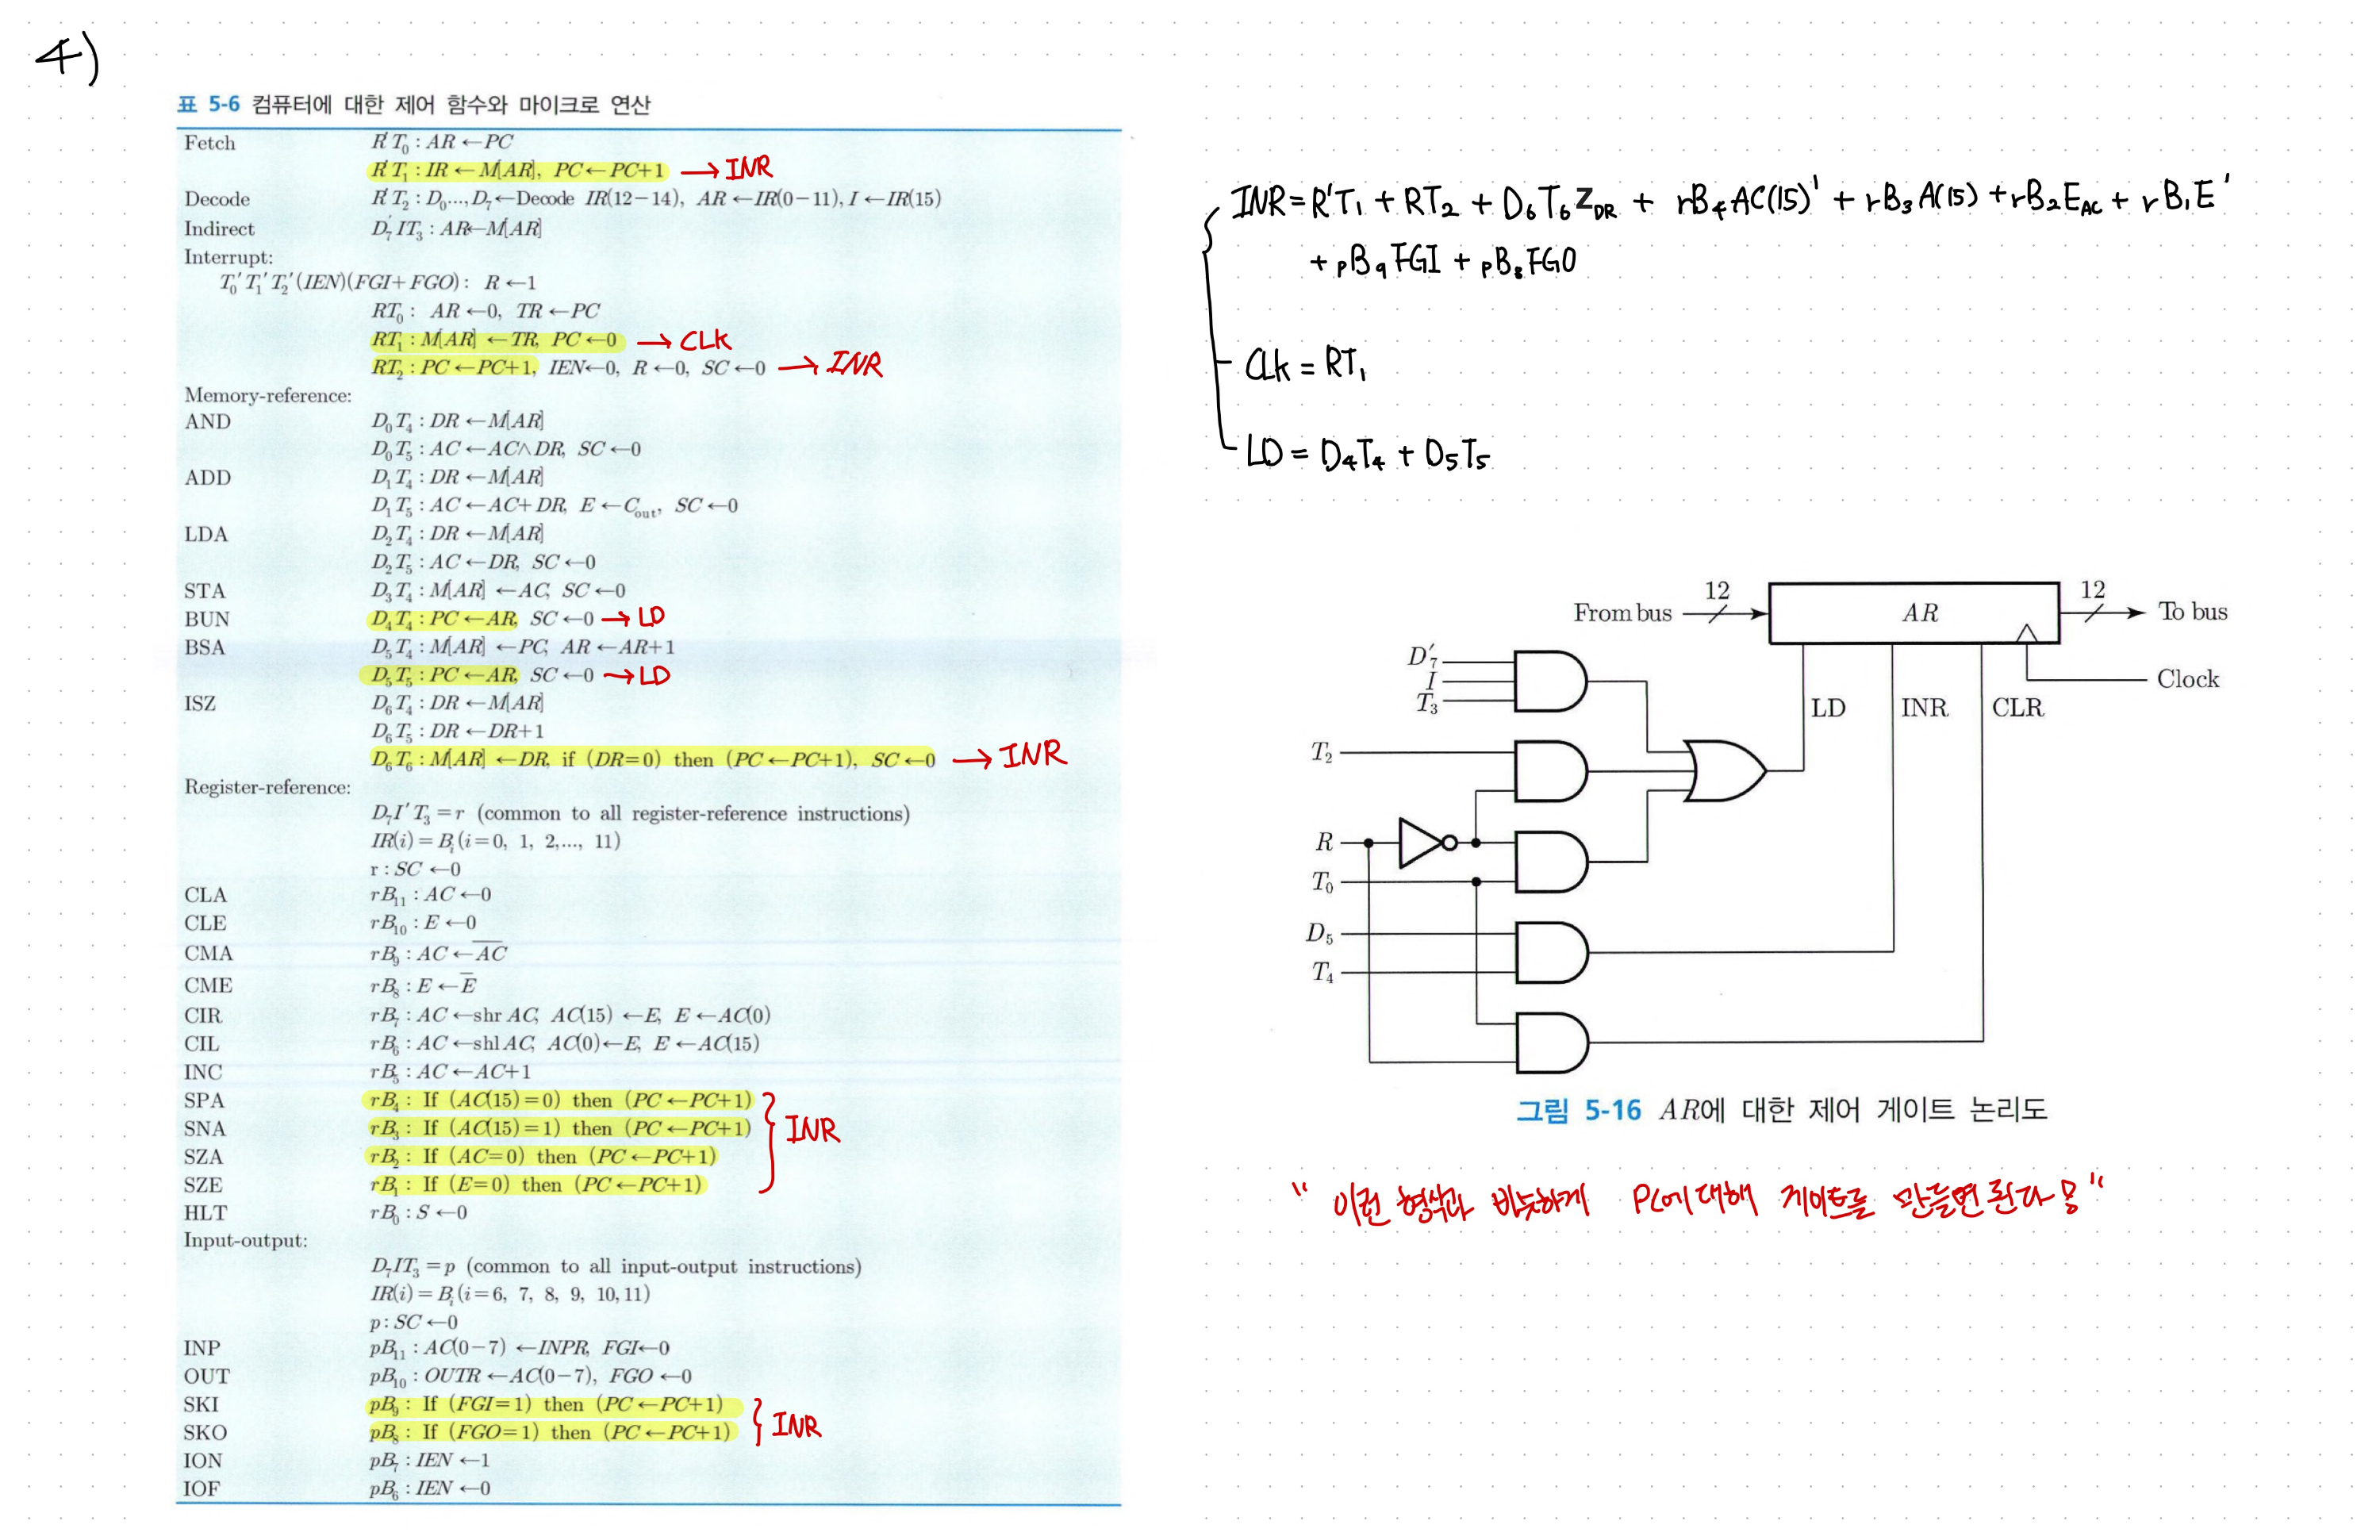 4)
표 5-6 컴퓨터에 대한 제어 함수와 마이크로 연산
Fetch R'T₀ : AR ←PC
R'T₁ : IR ←M[AR], PC←PC+1 → INR
Decode R'T₂ : D₀...,D₇←Decode IR(12−14), AR ←IR(0−11), I ←IR(15)
Indirect D₇'IT₃ : AR←M[AR]
Interrupt:
T₀'T₁'T₂'(IEN)(FGI+FGO) : R ←1
RT₀ : AR ←0, TR ←PC
RT₁ : M[AR] ←TR, PC ←0 → CLK
RT₂ : PC ←PC+1, IEN←0, R ←0, SC ←0 → INR
Memory-reference:
AND D₀T₄ : DR ←M[AR]
D₀T₅ : AC ←AC∧DR, SC ←0
ADD D₁T₄ : DR ←M[AR]
D₁T₅ : AC ←AC+DR, E ←Cout, SC ←0
LDA D₂T₄ : DR ←M[AR]
D₂T₅ : AC ←DR, SC ←0
STA D₃T₄ : M[AR] ←AC, SC ←0
BUN D₄T₄ : PC ←AR, SC ←0 → LD
BSA D₅T₄ : M[AR] ←PC, AR ←AR+1
D₅T₅ : PC ←AR, SC ←0 → LD
ISZ D₆T₄ : DR ←M[AR]
D₆T₅ : DR ←DR+1
D₆T₆ : M[AR] ←DR, if (DR=0) then (PC ←PC+1), SC ←0 → INR
Register-reference:
D₇I'T₃ =r (common to all register-reference instructions)
IR(i) = Bᵢ (i=0, 1, 2,..., 11)
r : SC ←0
CLA rB₁₁ : AC ←0
CLE rB₁₀ : E ←0
CMA rB₉ : AC ←A̅C̅
CME rB₈ : E ←E̅
CIR rB₇ : AC ←shr AC, AC(15) ←E, E ←AC(0)
CIL rB₆ : AC ←shl AC, AC(0)←E, E ←AC(15)
INC rB₅ : AC ←AC+1
SPA rB₄ : If (AC(15)=0) then (PC ←PC+1)
SNA rB₃ : If (AC(15)=1) then (PC ←PC+1) } INR
SZA rB₂ : If (AC=0) then (PC ←PC+1)
SZE rB₁ : If (E=0) then (PC ←PC+1)
HLT rB₀ : S ←0
Input-output:
D₇IT₃ =p (common to all input-output instructions)
IR(i) = Bᵢ (i=6, 7, 8, 9, 10,11)
p : SC ←0
INP pB₁₁ : AC(0−7) ←INPR, FGI←0
OUT pB₁₀ : OUTR ←AC(0−7), FGO ←0
SKI pB₉ : If (FGI=1) then (PC ←PC+1)
SKO pB₈ : If (FGO=1) then (PC ←PC+1) } INR
ION pB₇ : IEN ←1
IOF pB₆ : IEN ←0
INR = R'T₁ + RT₂ + D₆T₆Z_DR + rB₄AC(15)' + rB₃A(15) + rB₂E_AC + rB₁E'
+ pB₉FGI + pB₈FGO
CLK = RT₁
LD = D₄T₄ + D₅T₅
From bus 12 AR 12 To bus
Clock
LD INR CLR
D₇'
I
T₃
T₂
R
T₀
D₅
T₄
그림 5-16 AR에 대한 제어 게이트 논리도
" 이런 형식과 비슷하게 PC에 대해 게이트를 만들면 된다용 "